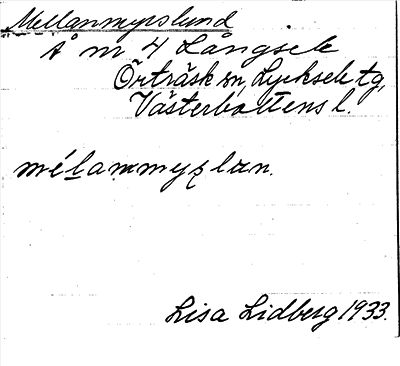 Mellanmyrslund
Å m 4 Långsele
Örträsk sn, Lycksele tg,
Västerbottens l.
mélammyʂlan.
Lisa Lidberg 1933.